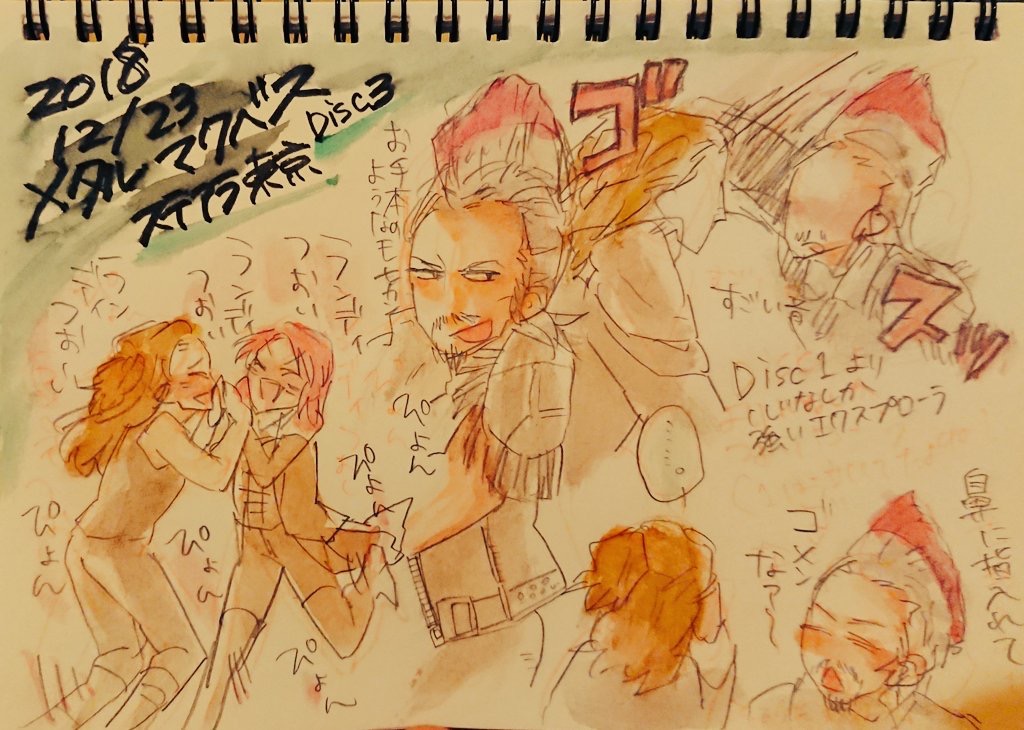 2018
12/23
メタルマクベス
Disc3
ステアラ東京
お手本の
ようなモヒカン
ゴッ
スッ
すごい音
Disc1より
心なしか
強いエクスプローラー
ランディ
つおい
ランディ
つおい
ランディ
つおい
ぴょーん
ぴょーん
ぴょん
ぴょん
ぴょん
……。
鼻に指入れて
ゴメン
なァ〜